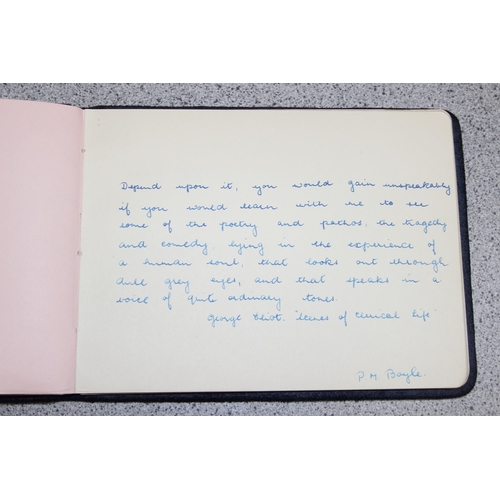 Depend upon it, you would gain unspeakably
if you would learn with me to see
some of the poetry and pathos, the tragedy
and comedy, lying in the experience of
a human soul, that looks out through
dull grey eyes, and that speaks in a
voice of quite ordinary tones.
George Eliot. 'Scenes of Clerical Life'
P. M. Boyle.